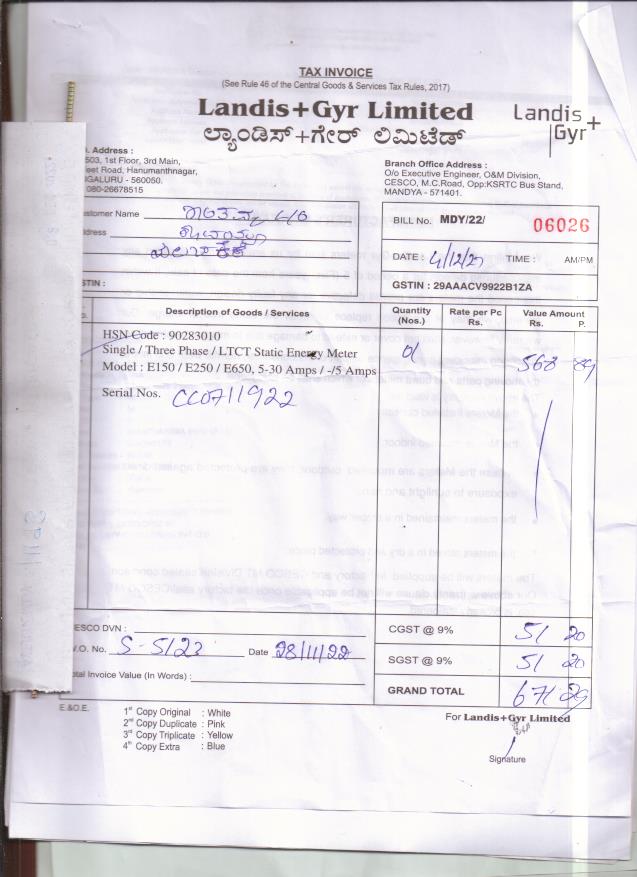 TAX INVOICE
(See Rule 46 of the Central Goods & Services Tax Rules, 2017)
Landis+Gyr Limited
ಲ್ಯಾಂಡಿಸ್+ಗೇರ್ ಲಿಮಿಟೆಡ್
Landis+
Gyr
Address :
503, 1st Floor, 3rd Main,
eet Road, Hanumanthnagar,
GALURU - 560050.
080-26678515
Branch Office Address :
O/o Executive Engineer, O&M Division,
CESCO, M.C.Road, Opp:KSRTC Bus Stand,
MANDYA - 571401.
ustomer Name
ddress
BILL No. MDY/22/ 06026
DATE : 4/12/22 TIME : AM/PM
GSTIN : 29AAACV9922B1ZA
STIN :
Description of Goods / Services
Quantity (Nos.)
Rate per Pc Rs.
Value Amount Rs. P.
HSN Code : 90283010
Single / Three Phase / LTCT Static Energy Meter
Model : E150 / E250 / E650, 5-30 Amps / -/5 Amps
01
568 89
Serial Nos. CC0711922
ESCO DVN :
V.O. No. S-5123 Date 28/11/22
tal Invoice Value (In Words) :
CGST @ 9% 51 20
SGST @ 9% 51 20
GRAND TOTAL 671 29
E.&O.E.
1st Copy Original : White
2nd Copy Duplicate : Pink
3rd Copy Triplicate : Yellow
4th Copy Extra : Blue
For Landis+Gyr Limited
Signature